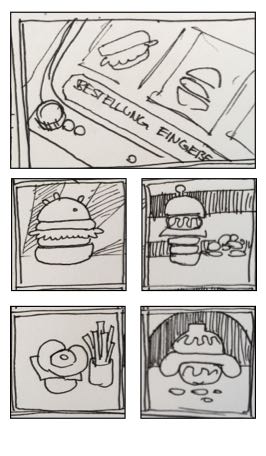 BESTELLUNG EINGEBE